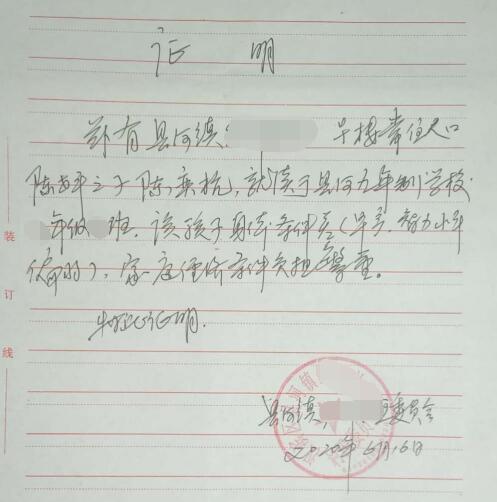 证 明
兹有县河镇 常住人口
陈 平之子陈奕杭，就读于县河九年制学校
年级 班，该孩子身体条件差（ 、智力水平
偏弱），家庭经济条件负担 重。
特此证明.
县河镇 委员会
2020年6月16日
装
订
线
河镇